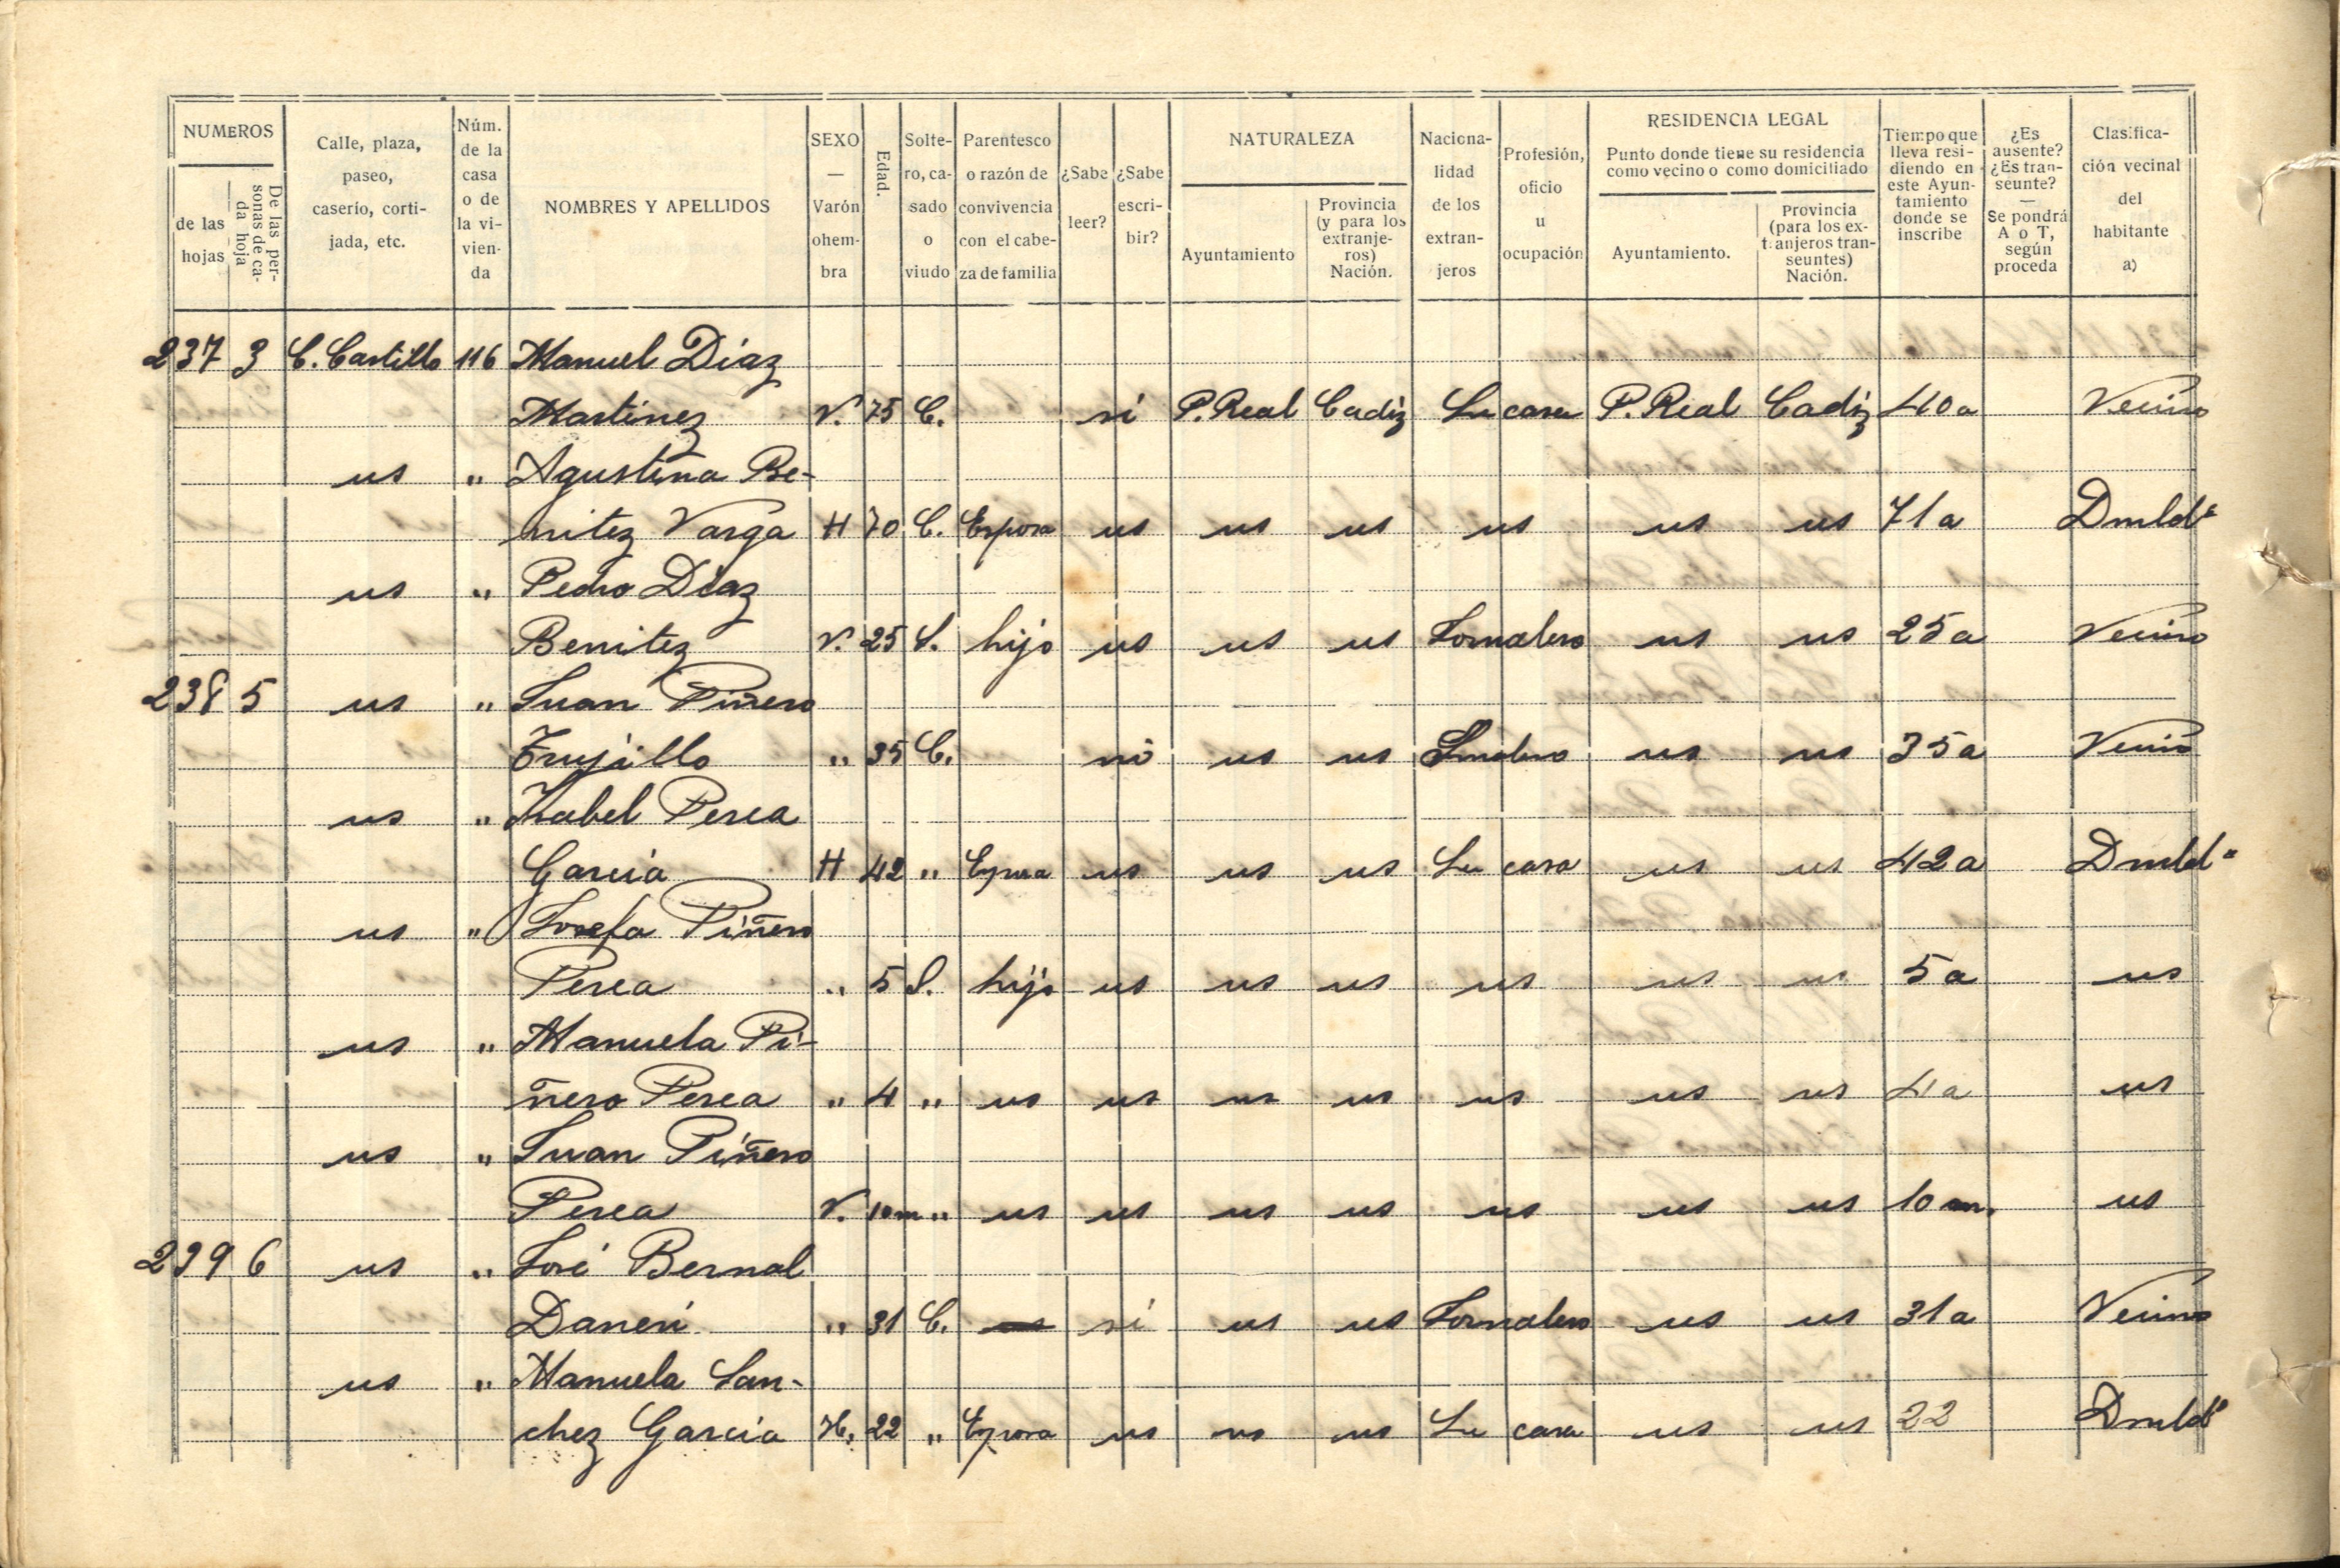 NUMEROS
de las hojas
De las personas de cada hoja
Calle, plaza, paseo, caserío, cortijada, etc.
Núm. de la casa o de la vivienda
NOMBRES Y APELLIDOS
SEXO — Varón ohembra
Edad.
Soltero, casado o viudo
Parentesco o razón de convivencia con el cabeza de familia
¿Sabe leer?
¿Sabe escribir?
NATURALEZA
Ayuntamiento
Provincia (y para los extranjeros) Nación.
Nacionalidad de los extranjeros
Profesión, oficio u ocupación
RESIDENCIA LEGAL
Punto donde tiene su residencia como vecino o como domiciliado
Ayuntamiento.
Provincia (para los extranjeros transeuntes) Nación.
Tiempo que lleva residiendo en este Ayuntamiento donde se inscribe
¿Es ausente? ¿Es transeunte? — Se pondrá A o T, según proceda
Clasificación vecinal del habitante a)
237 3 C. Castillo 116 Manuel Diaz
Martinez V. 75 C. si P. Real Cadiz Su casa P. Real Cadiz 40 a Vecino
us " Agustina Be-
nitez Varga H 70 C. Esposa us us us us us us 71 a Dmldª
us " Pedro Diaz
Benitez V. 25 S. hijo us us us Jornalero us us 25 a Vecino
238 5 us " Juan Piñero
Trujillo " 35 C. no us us Jornalero us us 35 a Vecino
us " Isabel Perea
Garcia H 42 " Esposa us us us Su casa us us 42 a Dmldª
us " Josefa Piñero
Perea " 5 S. hijo us us us us us us 5 a us
us " Manuela Pi-
ñero Perea " 4 " us us us us us us us 4 a us
us " Juan Piñero
Perea V. 10 m " us us us us us us us 10 m. us
239 6 us " José Bernal
Daneri " 31 C. si us us Jornalero us us 31 a Vecino
us " Manuela San-
chez Garcia H. 22 " Esposa us us us Su casa us us 22 Dmldª